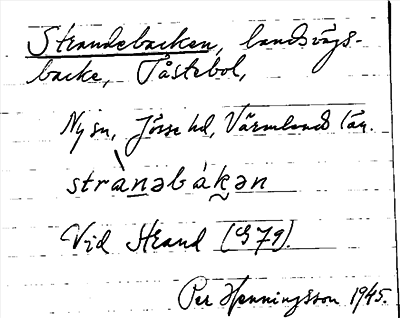 Strandebacken, landsvägs-
backe, Tåstebol,
Ny sn, Jösse hd, Värmlands län.
strànəbákən
Vid Strand (G79).
Per Henningsson 1945.